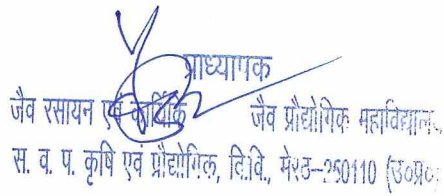 प्राध्यापक
जैव रसायन एवं कार्यिकी जैव प्रौद्योगिक
स. व. प. कृषि एवं प्रौद्योगिक, वि.वि., मेरठ-250110 (उ०प्र०